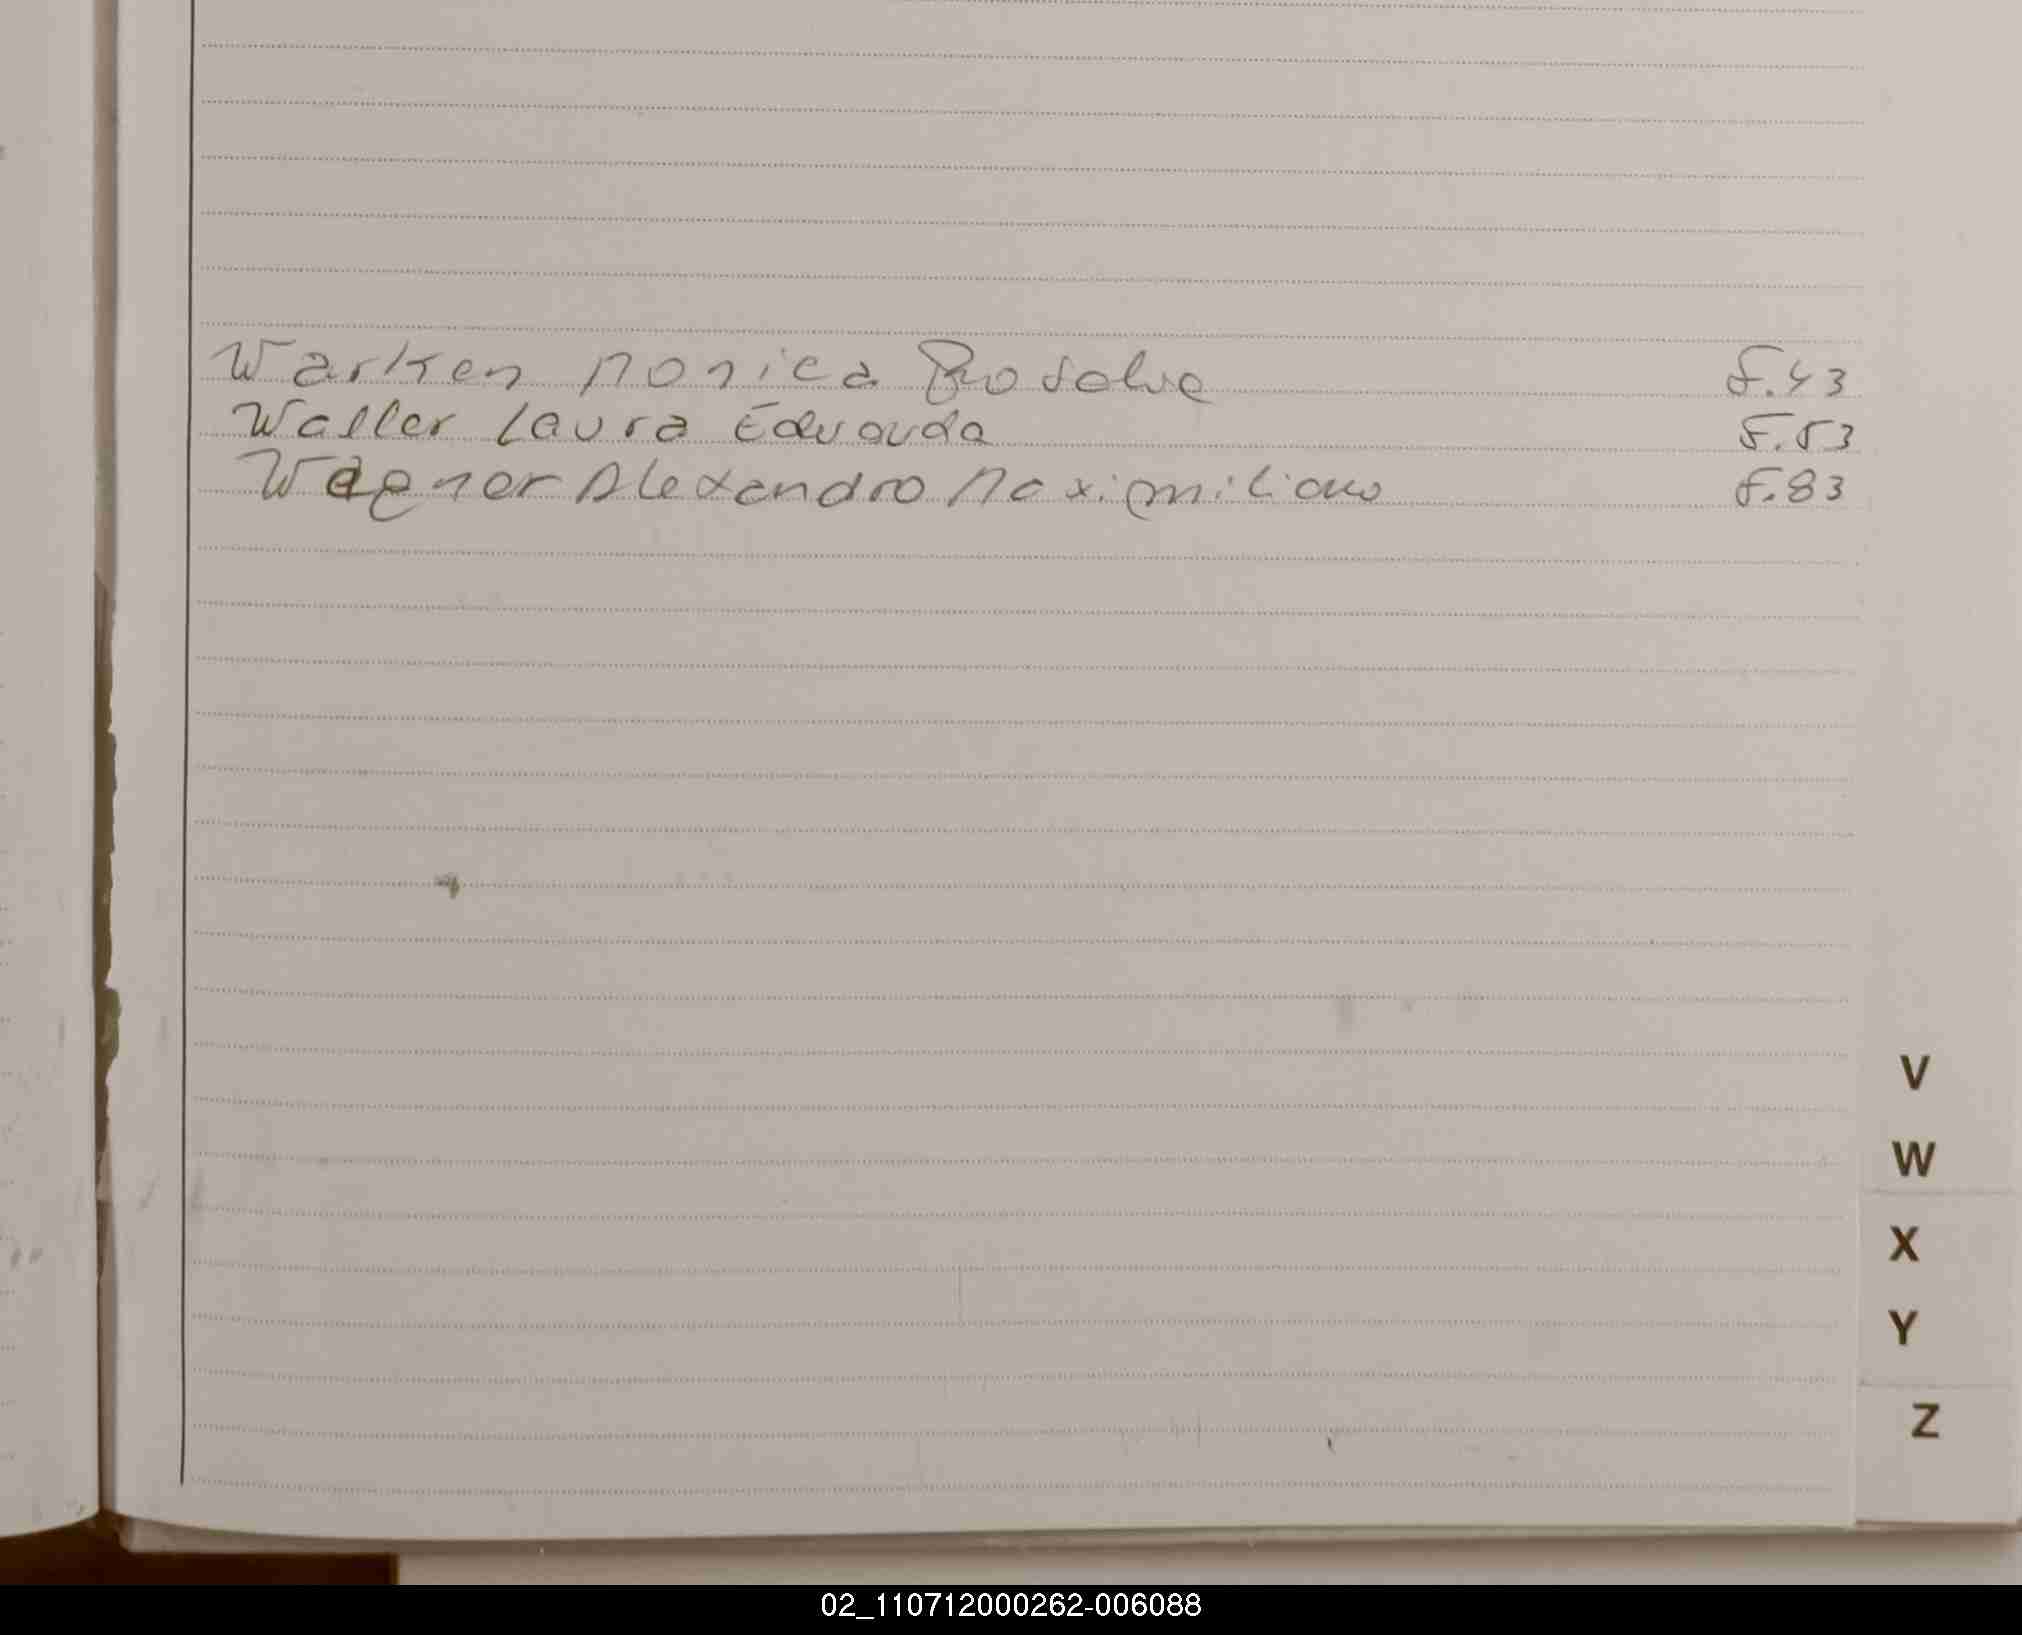 Warken Monica Rosalva F.43
Waller Laura Eduarda F.53
Wagner Alexandro Maximiliano F.83
V
W
X
Y
Z
02_110712000262-006088